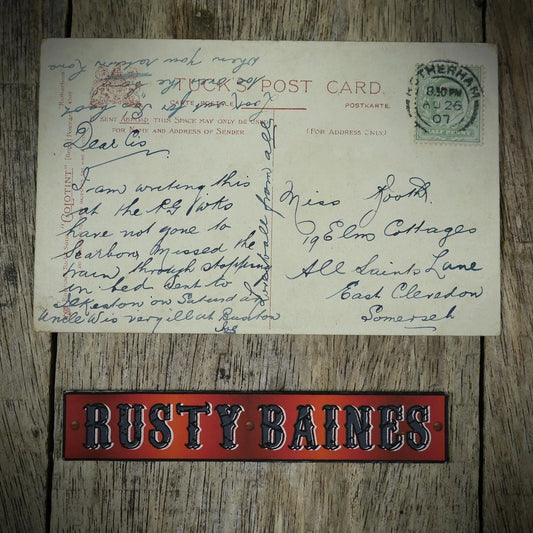 TUCK'S POST CARD.
CARTE POSTALE
POSTKARTE.
SENT ABROAD THIS SPACE MAY ONLY BE USED
FOR NAME AND ADDRESS OF SENDER
(FOR ADDRESS ONLY)
"COLOTINT"
ROTHERHAM
8.30 PM
AU 26
07
HALF PENNY
when you return
Dear Cis
I am writing this
at the P.G Wks
have not gone to
Scarboro, missed the
train, through stopping
in bed went to
Ilkeston on Saturday
Uncle W is very ill at Buxton
Joe
love to all from all
Miss Booth
19 Elms Cottages
All Saints Lane
East Clevedon
Somerset
RUSTY BAINES